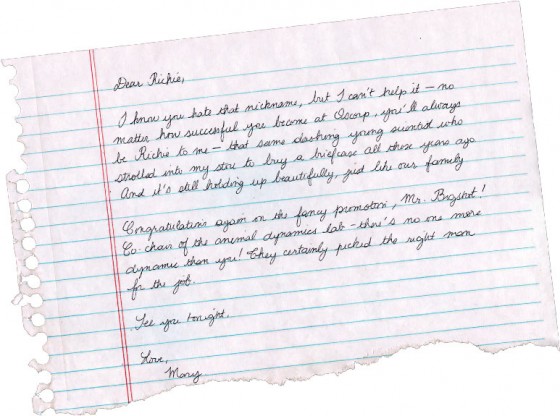 Dear Richie,
I know you hate that nickname, but I can't help it – no
matter how successful you become at Oscorp, you'll always
be Richie to me – that same dashing young scientist who
strolled into my store to buy a briefcase all those years ago
And it's still holding up beautifully, just like our family
Congratulations again on the fancy promotion, Mr. Bigshot!
Co-chair of the animal dynamics lab – there's no one more
dynamic than you! They certainly picked the right man
for the job.
See you tonight.
Love,
Mary